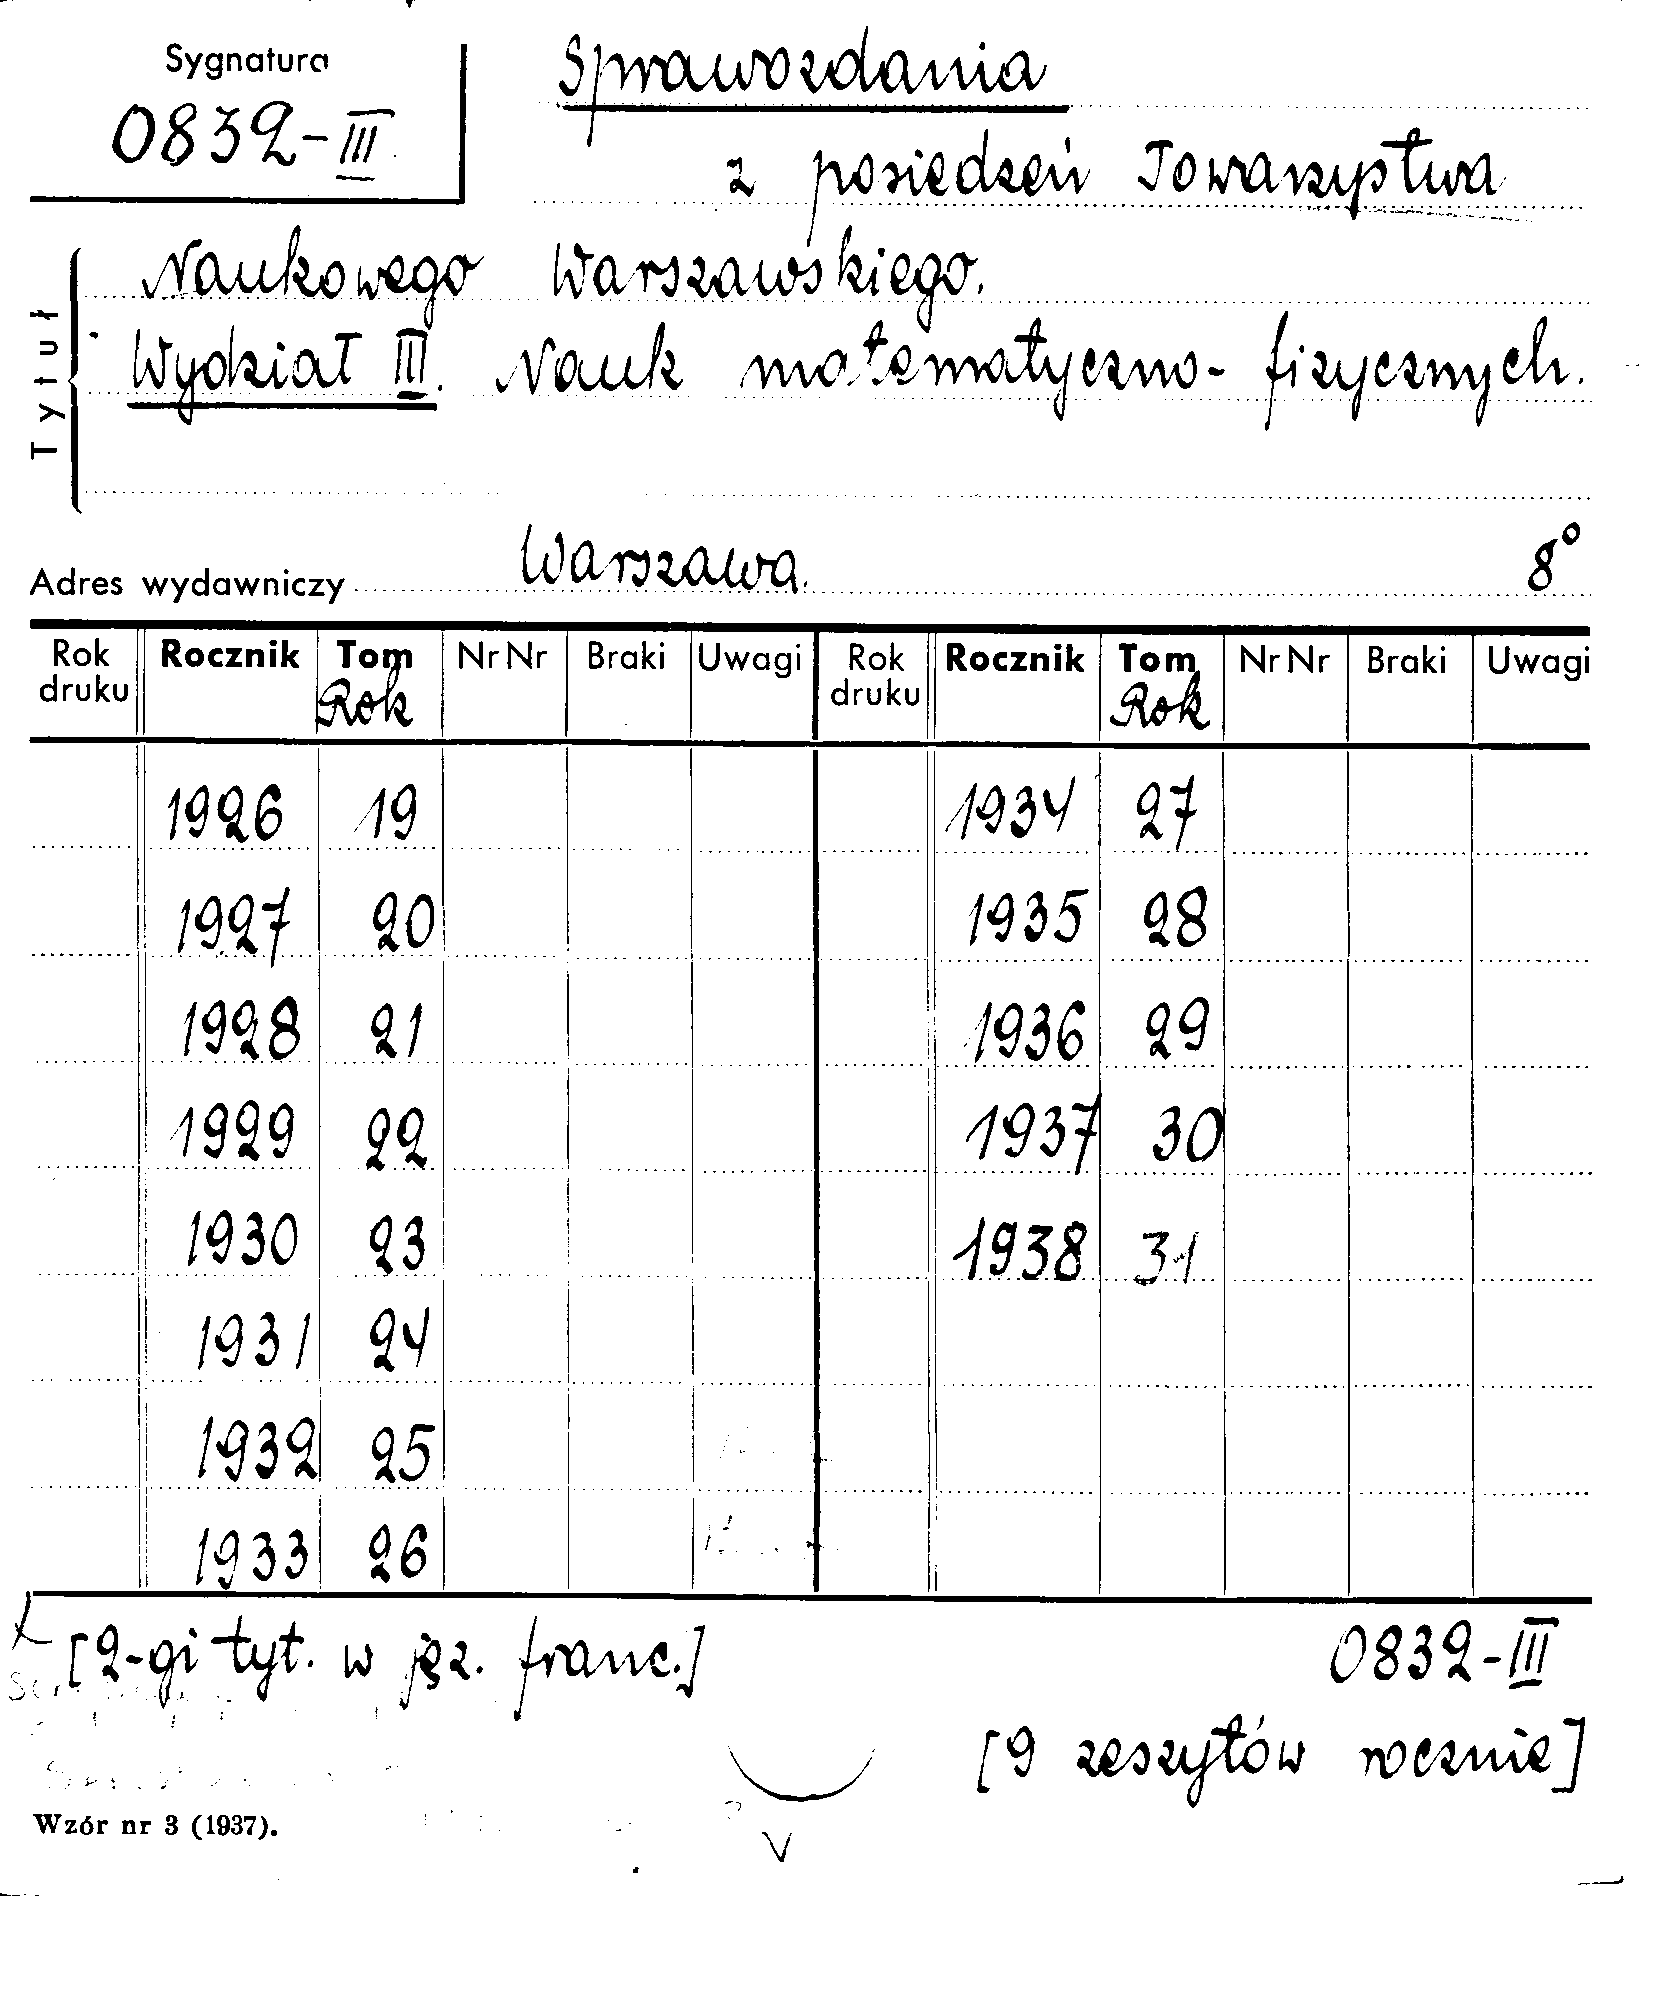 Sygnatura
0832-III
Sprawozdania
z posiedzeń Towarzystwa
Naukowego Warszawskiego.
Wydział III. Nauk matematyczno-fizycznych.
Tytuł
Adres wydawniczy Warszawa. 8°
Rok druku Rocznik Tom Rok Nr Nr Braki Uwagi Rok druku Rocznik Tom Rok Nr Nr Braki Uwagi
1926 19 1934 27
1927 20 1935 28
1928 21 1936 29
1929 22 1937 30
1930 23 1938 31
1931 24
1932 25
1933 26
[2-gi tyt. w jęz. franc.] 0832-III
[9 zeszytów rocznie]
Wzór nr 3 (1937).
V